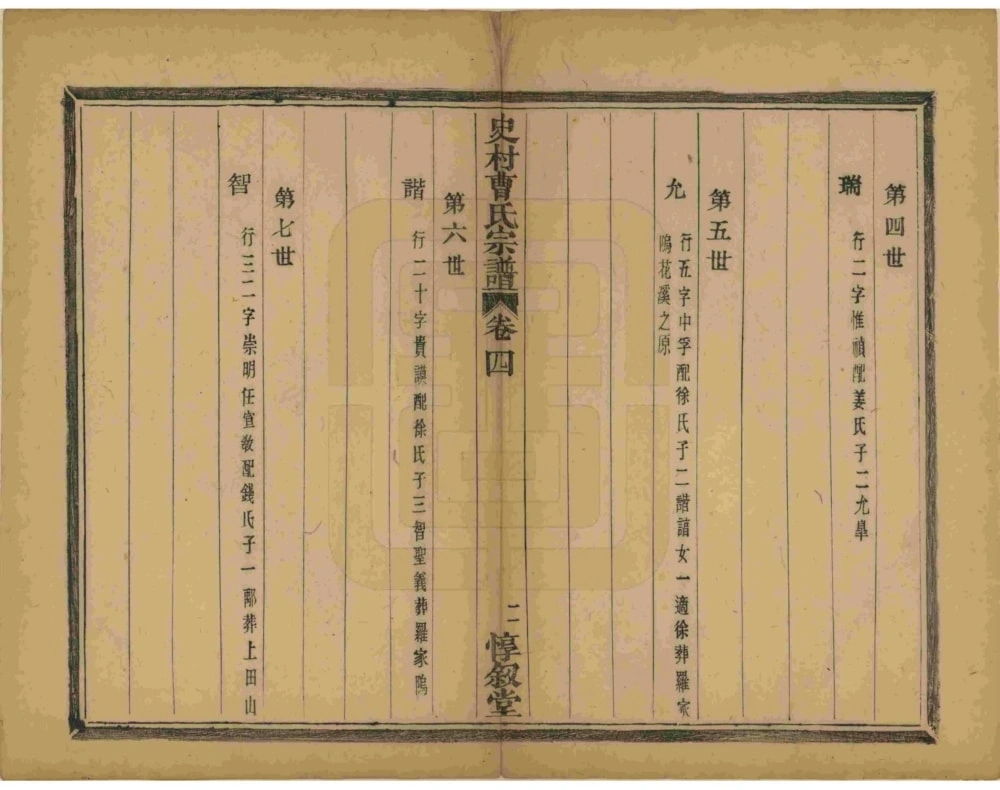 第四世
瑞
行二字惟禎配姜氏子二允臯
第五世
允
行五字中孚配徐氏子二諧諠女一適徐葬羅家
塢花溪之原
史村曹氏宗譜 卷四
二 惇叙堂
第六世
諧
行二十字貴謨配徐氏子三智聖義葬羅家塢
第七世
智
行三二字崇明任宣教配錢氏子一鄰葬上田山